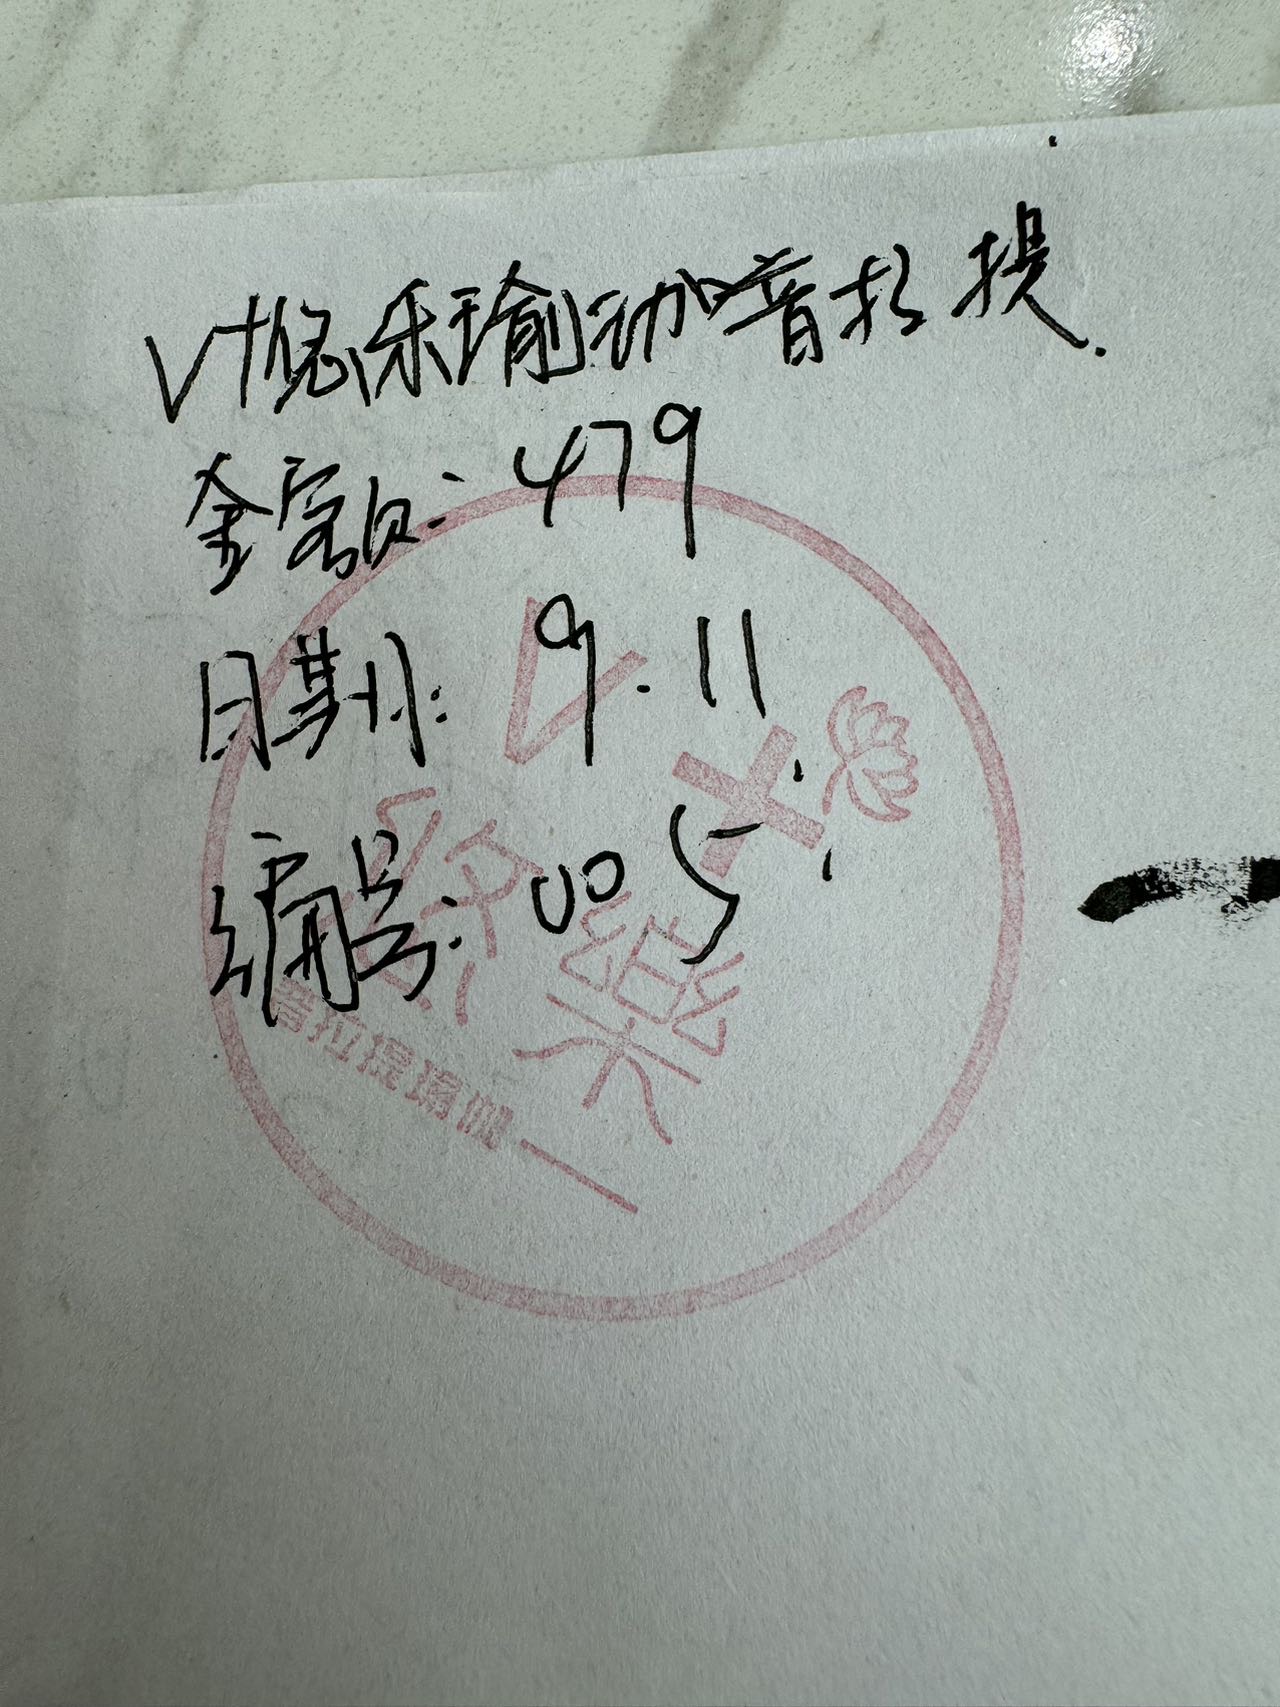 V+悠乐瑜珈普拉提.
金额:479
日期:9.11
编号:005
V+
悠樂
普拉提瑜伽